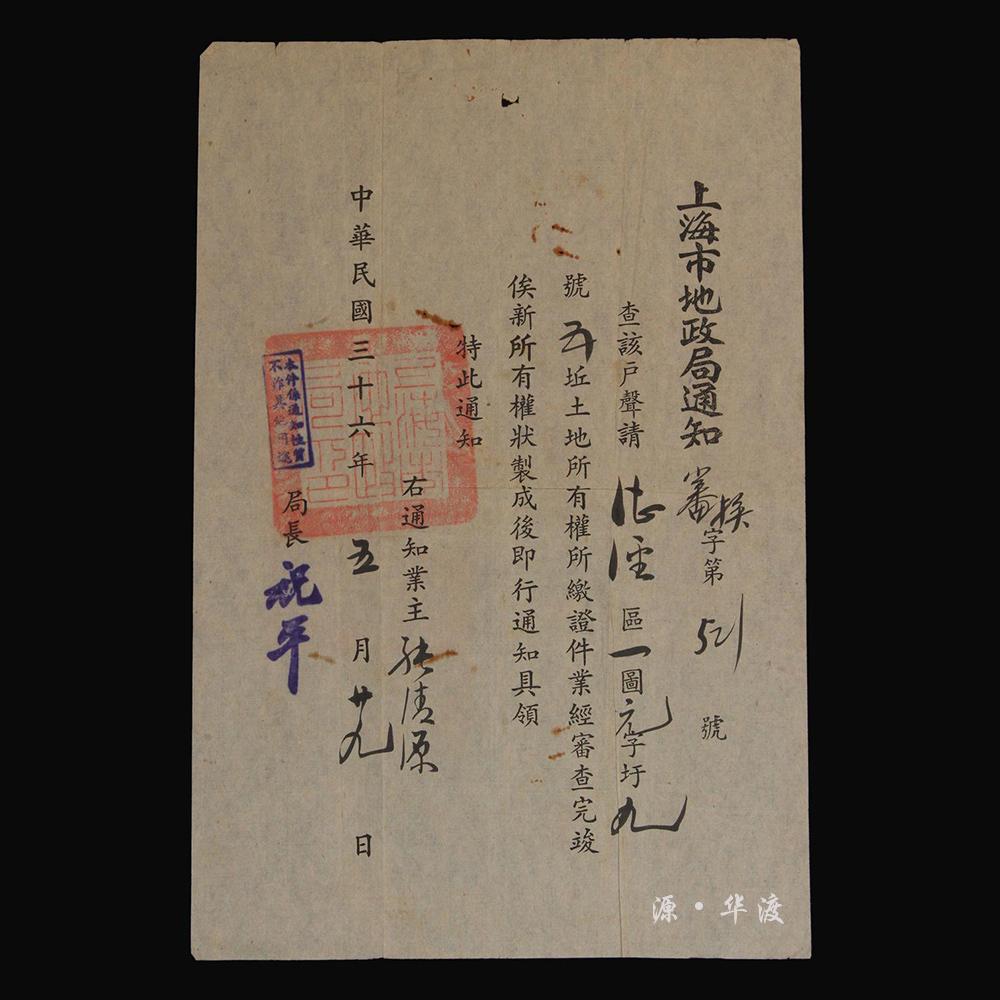 上海市地政局通知 審換字第521號
查該戶聲請洋涇區一圖元字圩九
號五坵土地所有權所繳證件業經審查完竣
俟新所有權狀製成後即行通知具領
特此通知
右通知業主張清源
中華民國三十六年五月廿九日
本件係通知性質
不作其他用途
局長祝平
源·华渡